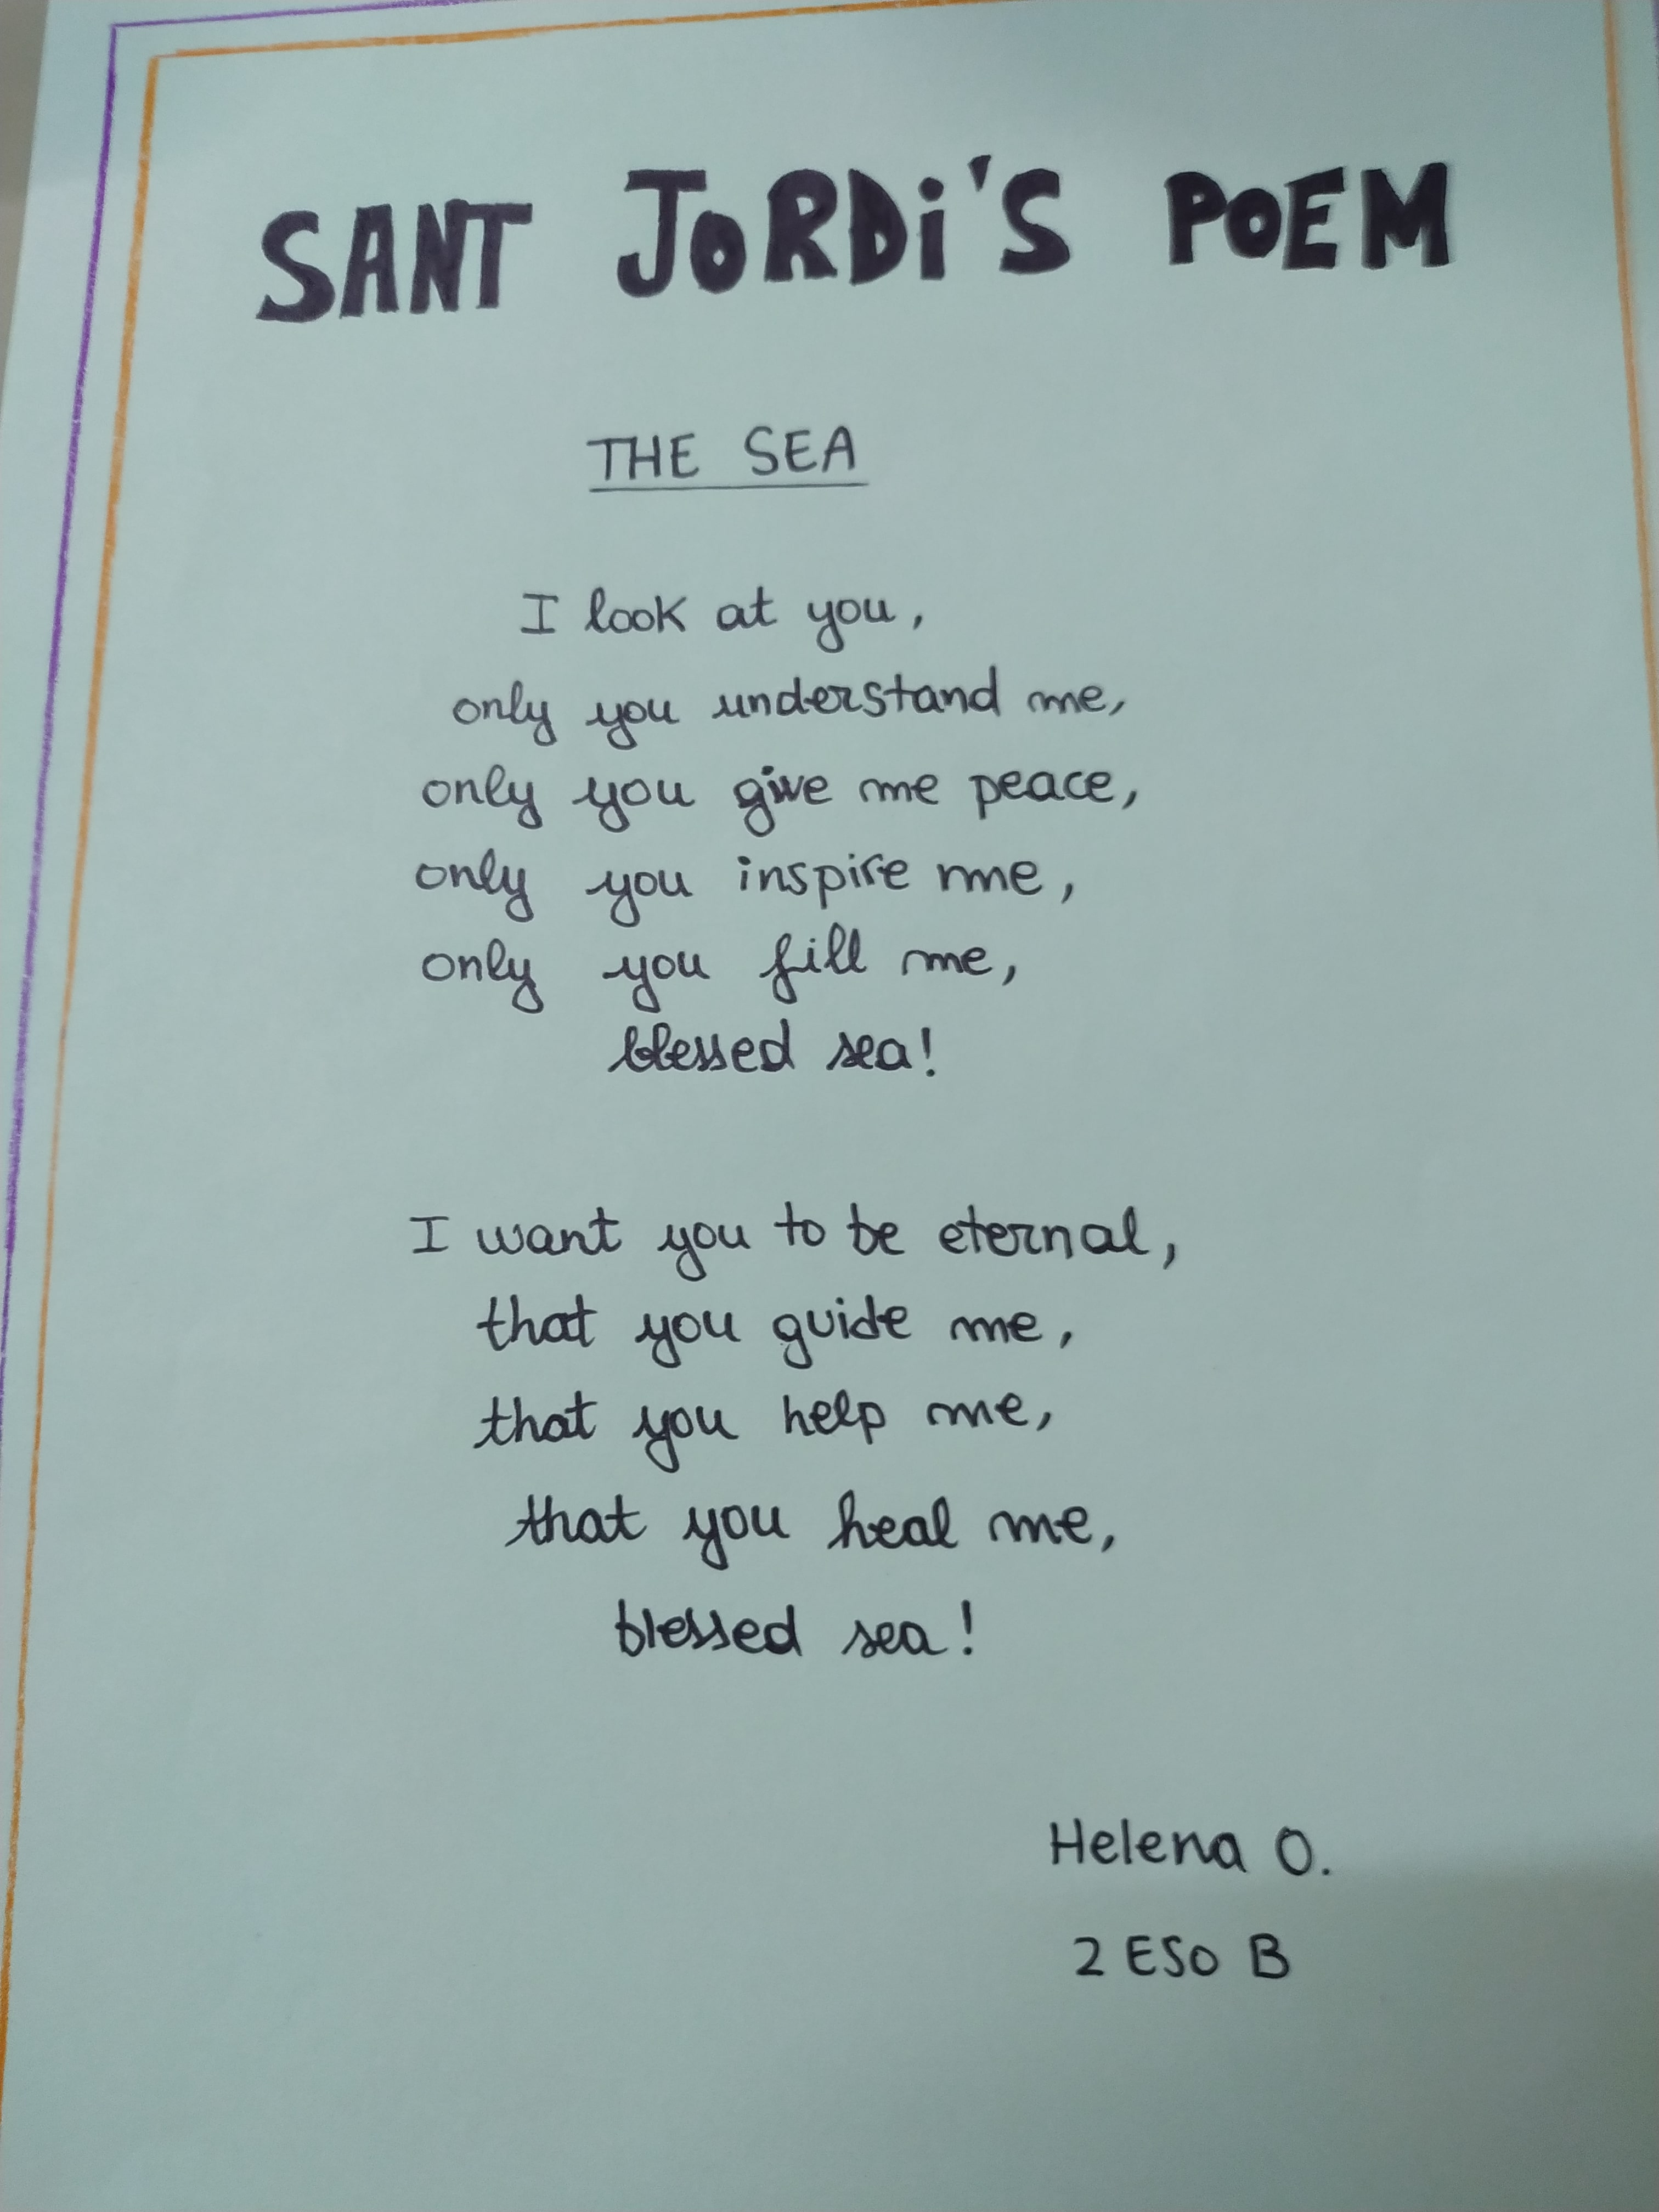 SANT JORDi'S POEM
THE SEA
I look at you,
only you understand me,
only you give me peace,
only you inspire me,
only you fill me,
blessed sea!
I want you to be eternal,
that you guide me,
that you help me,
that you heal me,
blessed sea!
Helena O.
2 ESO B